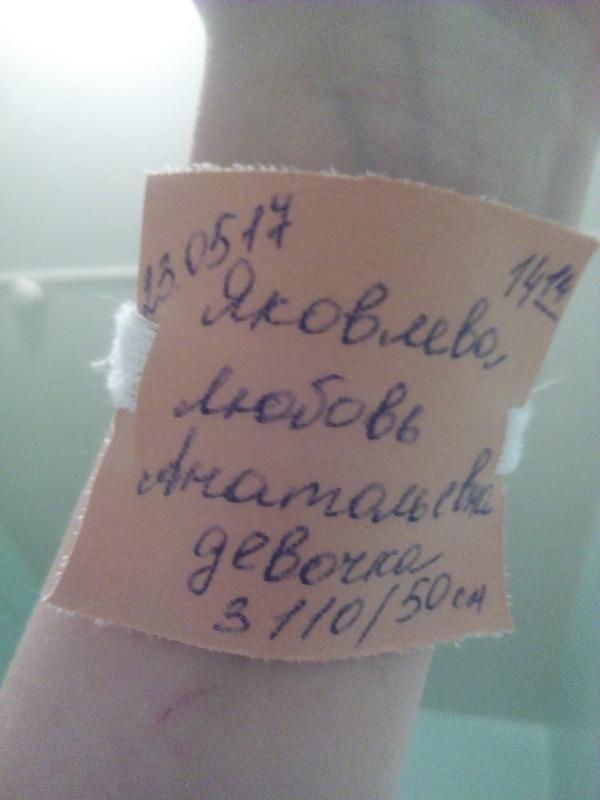 23.05.17
14 14
Яковлева
Любовь
Анатольевна
девочка
3 110/50 см